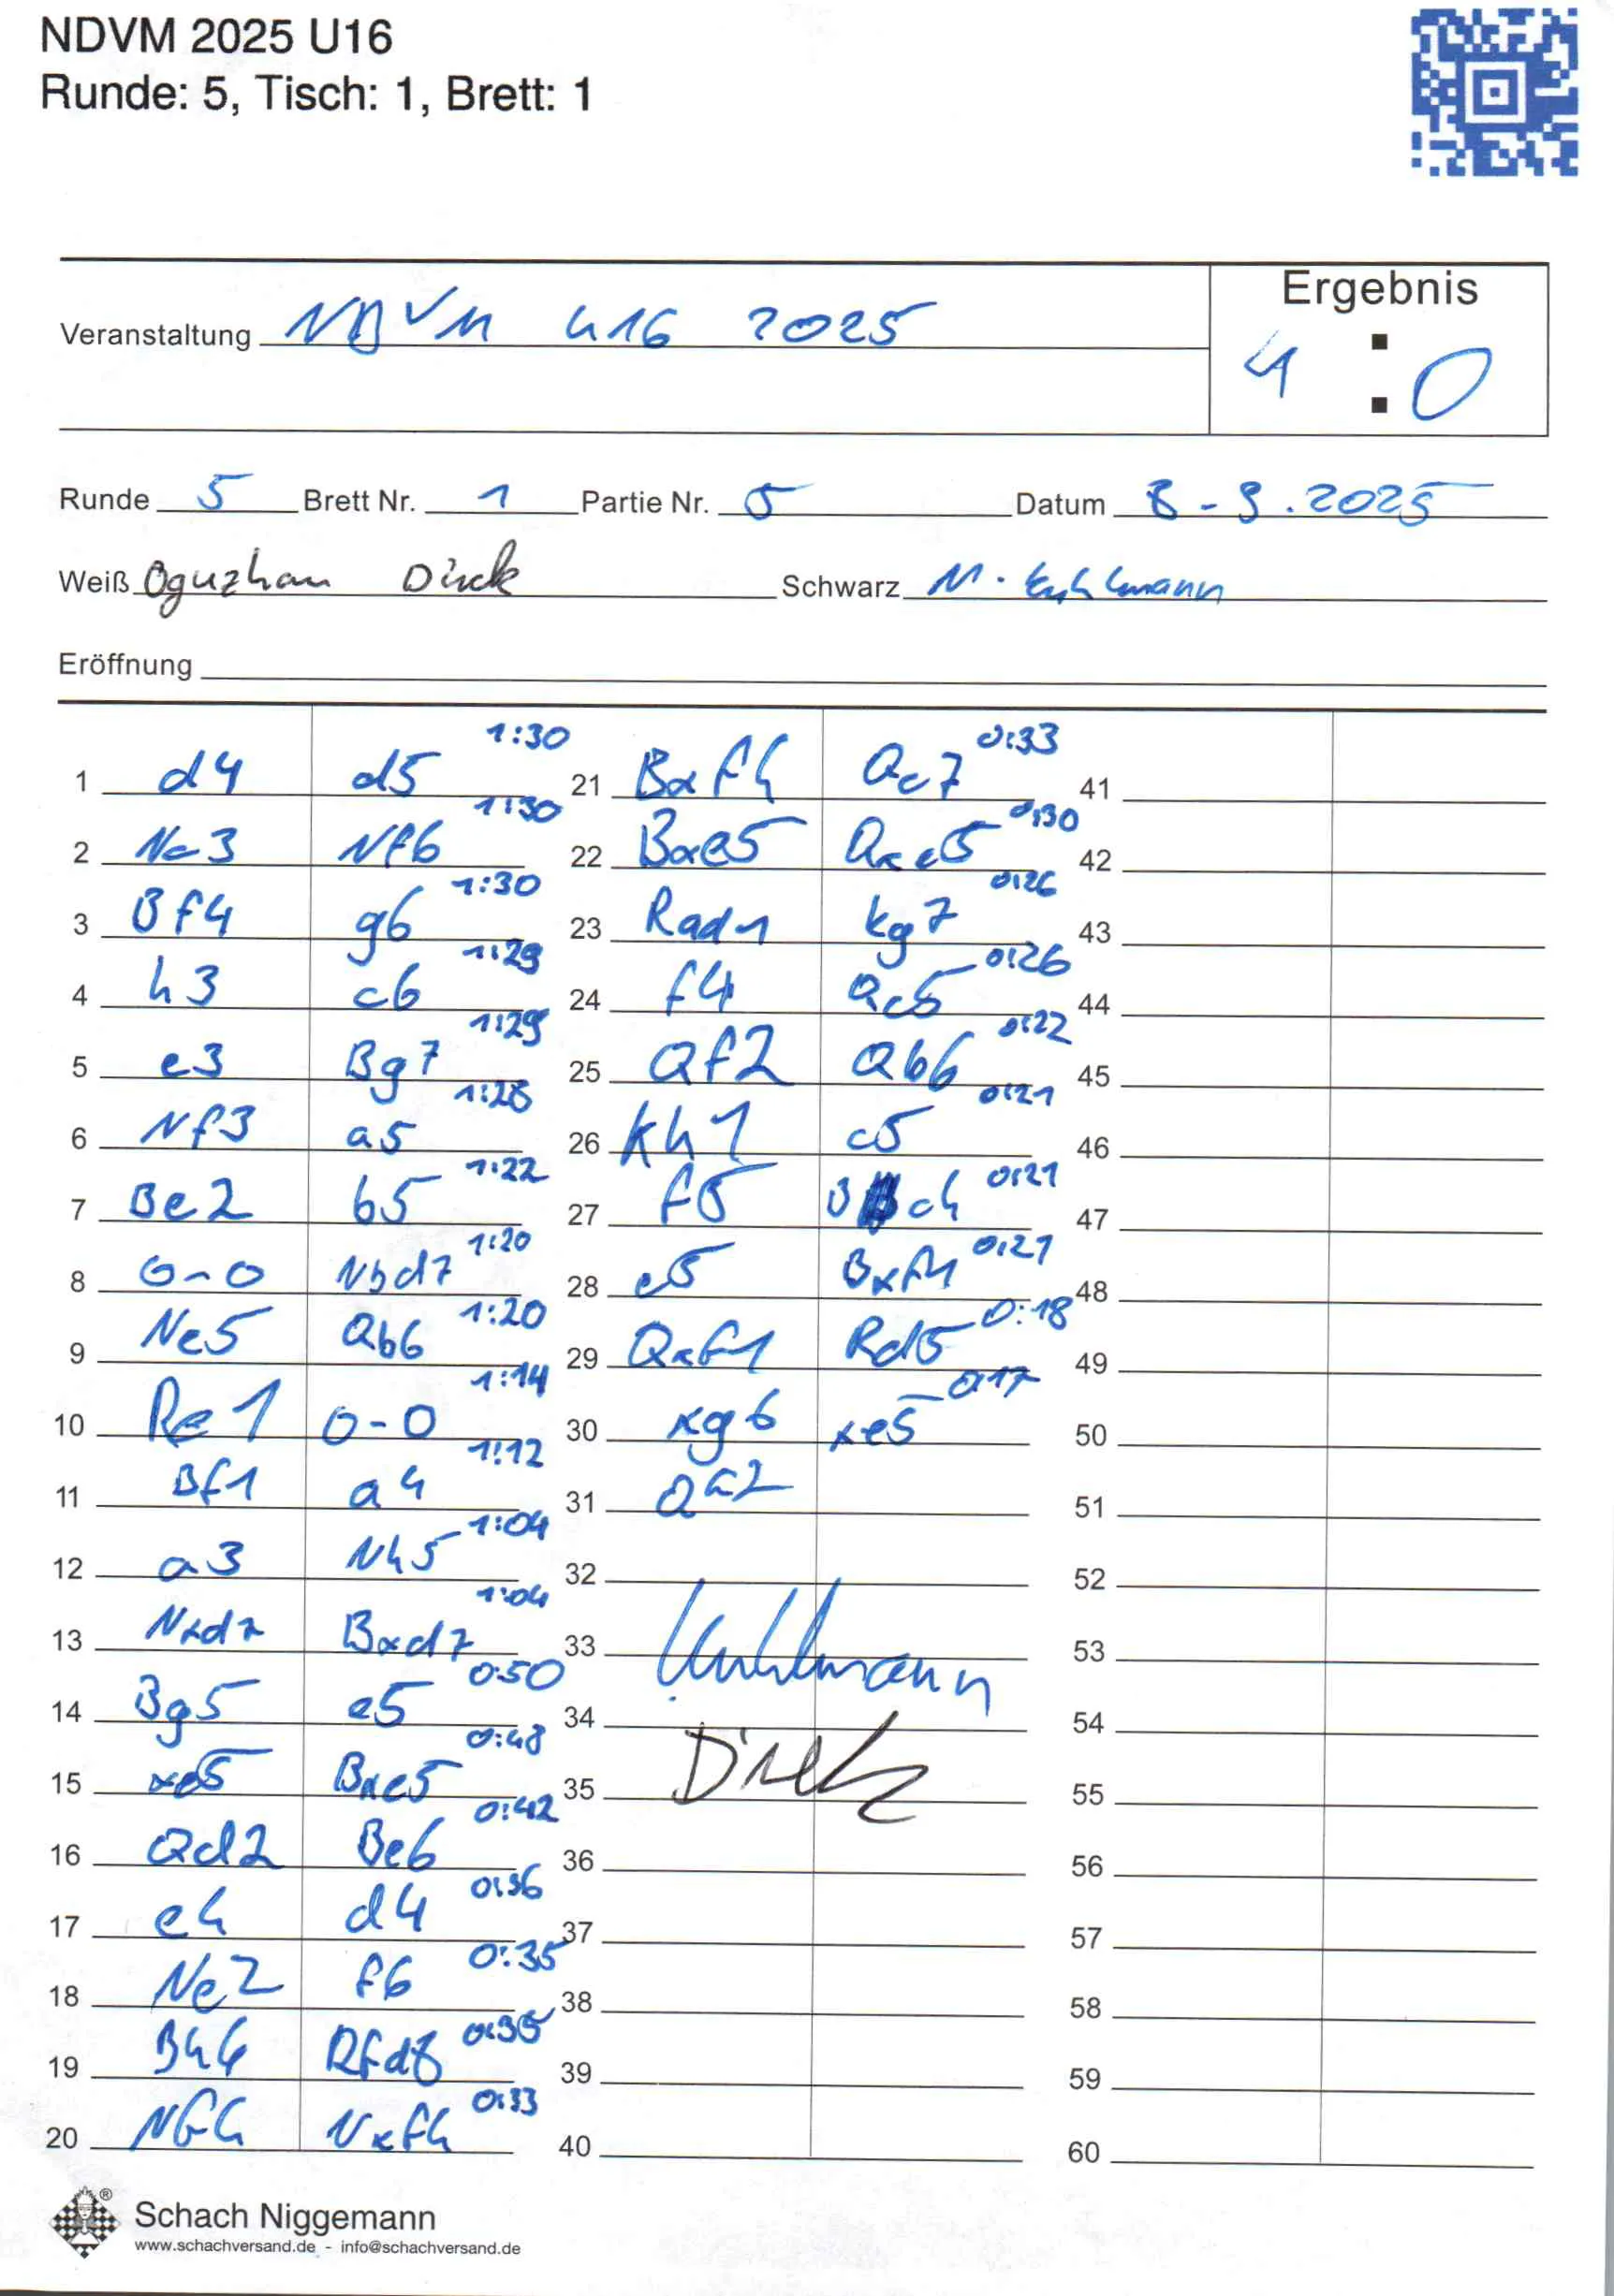 NDVM 2025 U16
Runde: 5, Tisch: 1, Brett: 1
Ergebnis
Veranstaltung NDVM U16 2025
4 : 0
Runde 5 Brett Nr. 1 Partie Nr. 5 Datum 8-9.2025
Weiß Oguzhan Schwarz M.
Eröffnung
1 d4 d5 1:30
2 Nc3 Nf6 1:30
3 Bf4 g6 1:30
4 h3 c6 1:29
5 e3 Bg7 1:29
6 Nf3 a5 1:28
7 Be2 b5 1:22
8 0-0 Nbd7 1:20
9 Ne5 Qb6 1:20
10 Re1 0-0 1:14
11 Bf1 a4 1:12
12 a3 Nh5 1:04
13 Nxd7 Bxd7 1:04
14 Bg5 e5 0:50
15 xe5 Bxe5 0:48
16 Qd2 Be6 0:42
17 e4 d4 0:36
18 Ne2 f6 0:35
19 Bh6 Rfd8 0:35
20 Nf4 Nxf4 0:33
21 Bxf4 Qc7 0:33
22 Bxe5 Qxe5 0:30
23 Rad1 Kg7 0:26
24 f4 Qc5 0:26
25 Qf2 Qb6 0:22
26 Kh1 c5 0:21
27 f5 B c4 0:21
28 e5 Bxf1 0:21
29 Qxf1 Rd5 0:18
30 xg6 xe5 0:17
31
32
33 Kuhlmann
34
35
36
37
38
39
40
41
42
43
44
45
46
47
48
49
50
51
52
53
54
55
56
57
58
59
60
Schach Niggemann
www.schachversand.de - info@schachversand.de